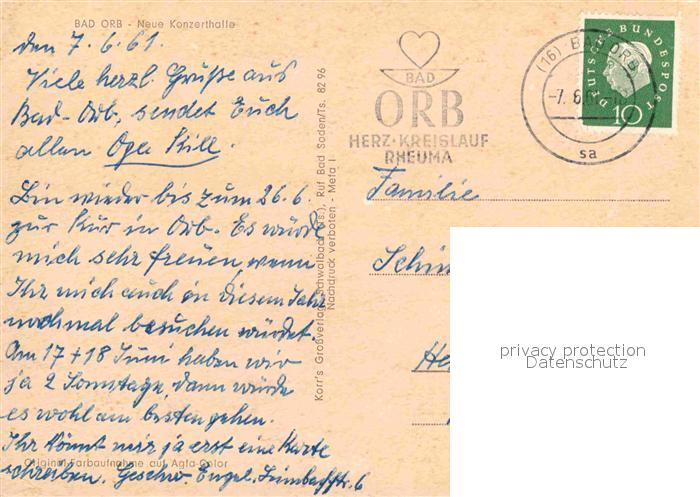 BAD ORB - Neue Konzerthalle
den 7.6.61.
Viele herzl. Grüße aus
Bad-Orb, sendet Euch
allen Opa Kill.
Bin wieder bis zum 26.6.
zur Kur in Orb. Es würde
mich sehr freuen, wenn
Ihr mich auch in diesem Jahr
nochmal besuchen würdet.
Am 17+18 Juni haben wir
ja 2 Sonntage, dann würde
es wohl am besten gehen.
Ihr könnt mir ja erst eine Karte
schreiben. Geschw. Engel,
Original-Farbaufnahme auf Agfa-Color
Korr's Großverlag, Schwalbach (Ts.), Ruf Bad Soden/Ts. 82 96
Nachdruck verboten - Meta I
BAD
ORB
HERZ·KREISLAUF
RHEUMA
(16) BAD ORB
-7. 6.
sa
DEUTSCHE BUNDESPOST
10
Familie
Schin
He
privacy protection
Datenschutz